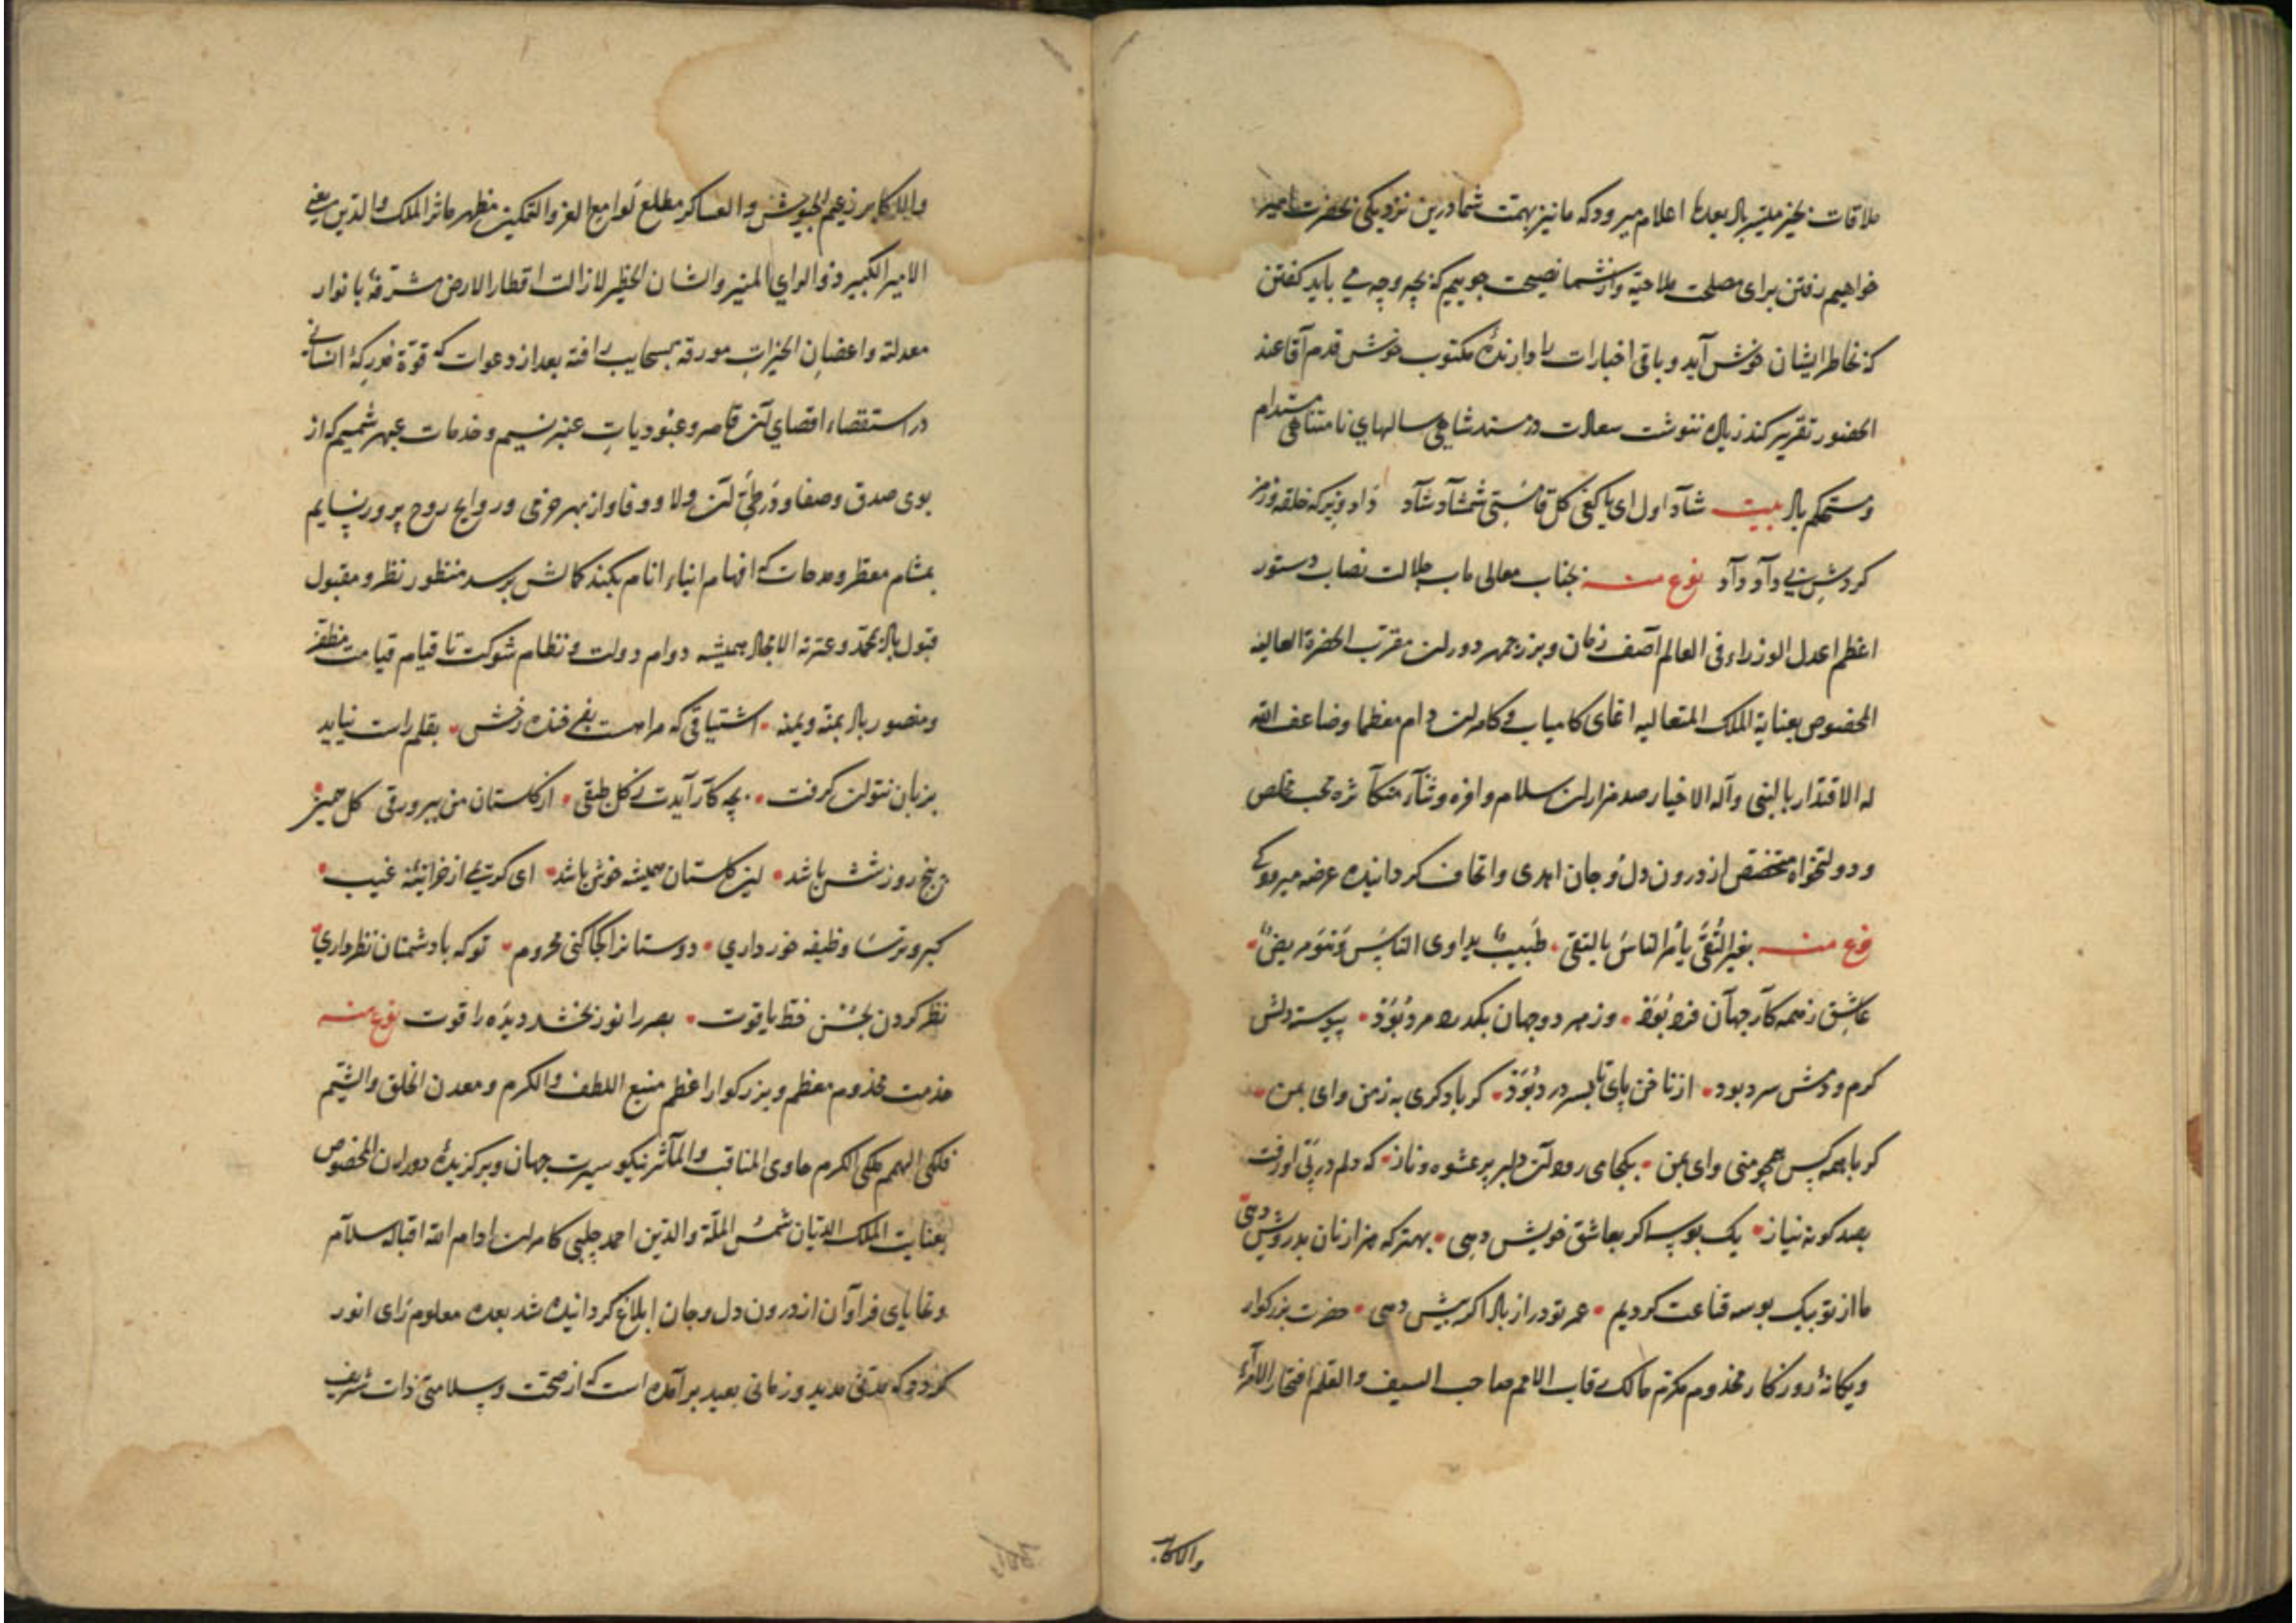 ملاقات بخیر میسر باد بعدها اعلام میرود که ما نیز بهمت شما درین نزدیکی بحضرت امیر
خواهیم رفتن برای مصلحت ملاحیّه وازشما نصیحت جوییم که بچه وجه می باید کفتن
که بخاطر ایشان خوش آید و باقی اخبارات را دارندهٔ مکتوب خوش قدم آقا عند
الحضور تقریر کند زیاده ننوشت سعادت در مسند شاهی سالهای نامتناهی مستدام
ومستحکم باد بیت شاد اول ای کفی کل قامتی شمشاد شاد داد ویرکه خلقه وزمز
کردش نی داد داد نوع منه بجناب معالی مآب جلالت نصاب دستور
اعظم اعدل الوزراء فی العالم آصف زمان وبزرجمهر دوران مقرّب الحضرة العالیه
المخصوص بعنایة الملک المتعالیه اغای کامیاب و کامران دام معظما وضاعف الله
له الاقتدار بالنبی وآله الاخیار صد هزاران سلام وافره وثناء متکاثره محب مخلص
ودولتخواه متخصّص از درون دل وجان اهدی واتحاف کردانیده عرضه میرود که
نوع منه بغیر التُقیَّ یأمر الناسُ بالتقی طَبیبٌ یداوی الناسَ وَهوَ مریضٌ
عاشق زهمه کار جهان فرد بُوَد وزهر دو جهان بکذرد مرد بُوَد پیوسته دلش
کرم ودمش سرد بود از ناخن پای تا بسر درد بُوَد کر باد کری به زمن وای بمن
کر با همه کس همچو منی وای بمن بکجا می رود آن دلبر پر عشوه وناز که دلم در پی او رفت
بصد کونه نیاز یک بوسه اکر بعاشق خویش دهی بهتر که هزار نان بدرویش دهی
ما از تو بیک بوسه قناعت کردیم عمر تو دراز باد اکر بیش دهی حضرت بزرکوار
ویکانهٔ روزکار مخدوم مکرّم مالک رقاب الامم صاحب السیف والقلم افتخار الامراء
والاکابر
والاکابر زعیم الجیوش والعساکر مطلع لوامع العز والتمکین مظهر مآثر الملک والدین یعنی
الامیر الکبیر ذو الرای المنیر والشان الخطیر لازالت اقطار الارض مشرقة بانوار
معدلته واغصان الخیرات مورقه بسحایب رافته بعد از دعوات که قوّة مدرکهٔ انسانی
در استقصاء اقصای آن قاصر وعبودیات عنبر نسیم وخدمات عبهر شمیم که از
بوی صدق وصفا ودر طیّ آن ولا ووفا واز بهر خرمی وروایح روح پرور بسایم
بمشام معظر ومدحات که افهام انباء انام بکند کمالش برسد منظور نظر ومقبول
قبول باد بمحمّد وعترته الامجاد همیشه دوام دولت ونظام شوکت تا قیام قیامت مظفر
ومنصور باد بمنّه ویمنه اشتیاقی که مراست بفرخنده رخش بقلم راست نیاید
بزبان نتوان کرفت بچه کار آیدت ز کل طبقی از کلستان من ببر ورقی کل همین
پنج روز شش باشد این کلستان همیشه خوش باشد ای کریمی که از خزانهٔ غیب
کبر وترسا وظیفه خور داری دوستان را کجا کنی محروم تو که با دشمنان نظر داری
نظر کردن بحُسن خط یاقوت بصر را نور بخشد دیده را قوت نوع منه
خدمت مخدوم معظم وبزرکوار اعظم منبع اللطف والکرم ومعدن الخلق والشیم
فلکی الهمم ملکی الکرم حاوی المناقب والمآثر نیکو سیرت جهان وبرکزیدهٔ دوران المخصوص
بعنایت الملک الدیّان شمس الملّة والدین احمد چلبی کامران ادام الله اقباله سلام
وتحایای فراوان از درون دل وجان ابلاغ کردانیده شد بعده معلوم رای انور
که مدّتی مدید وزمانی بعید برآمده است که از صحّت وسلامتی ذات شریف